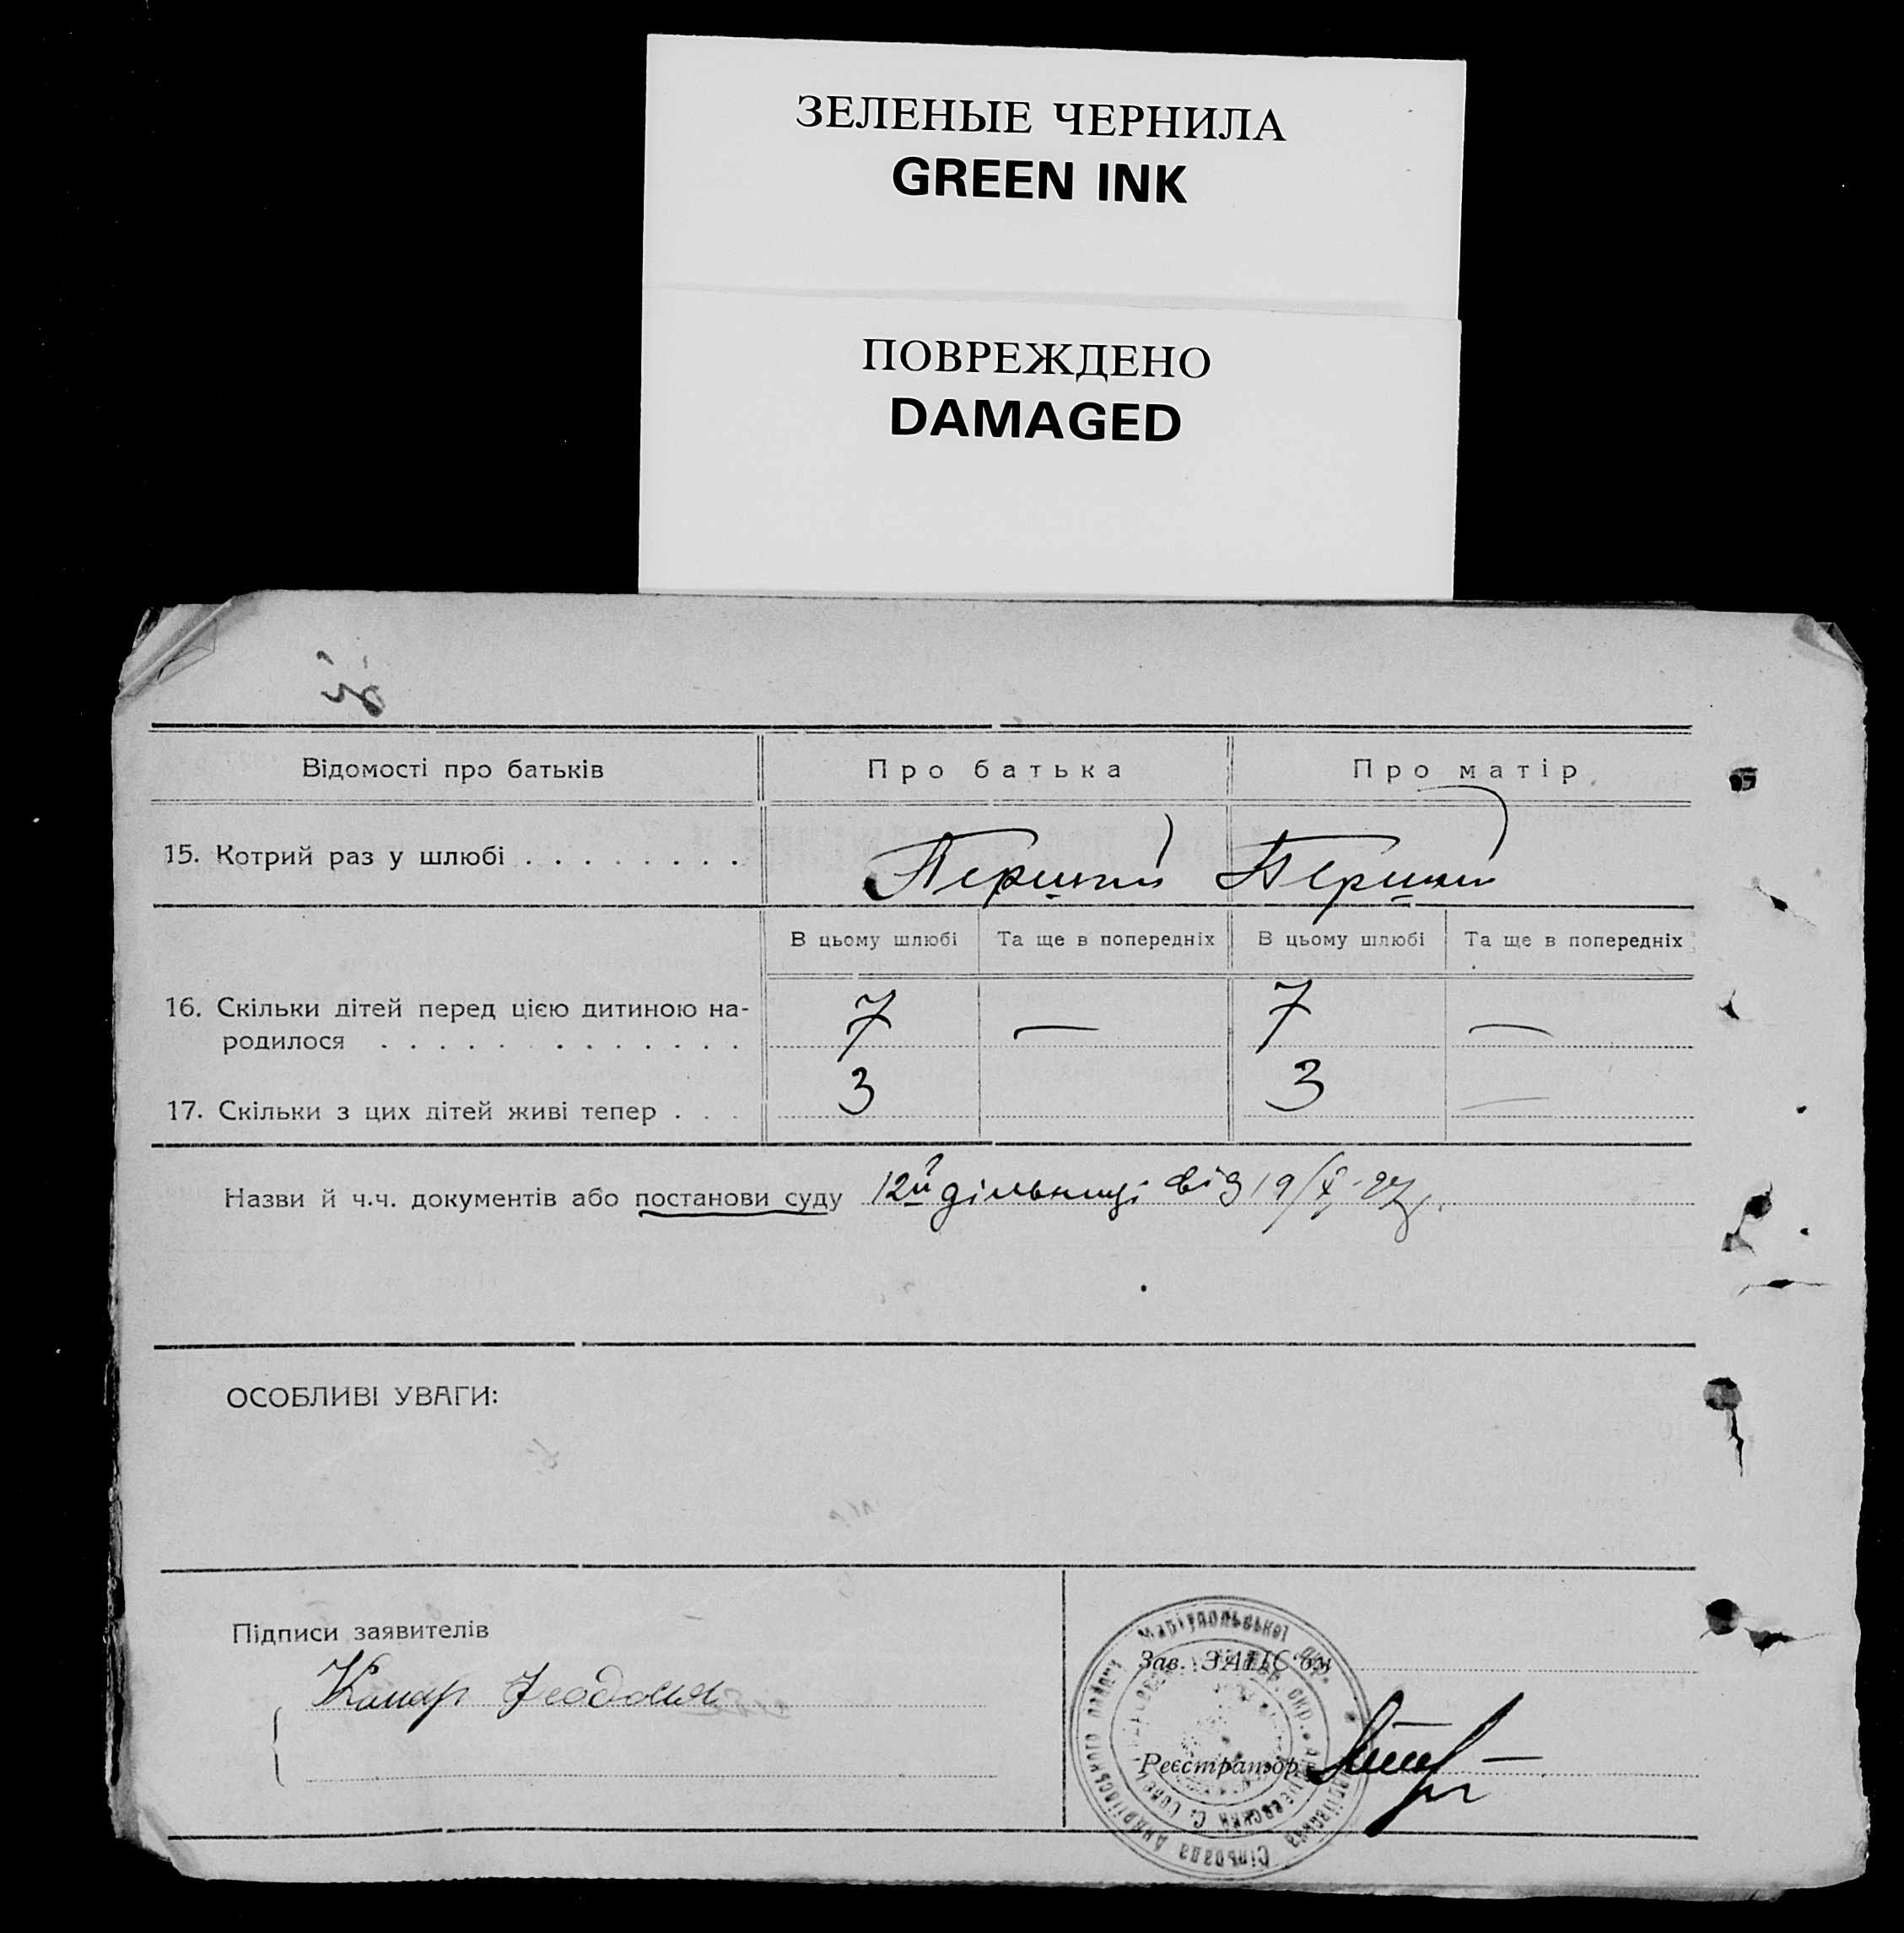 ЗЕЛЕНЫЕ ЧЕРНИЛА
GREEN INK
ПОВРЕЖДЕНО
DAMAGED
Відомості про батьків Про батька Про матір
15. Котрий раз у шлюбі . . . . . . . . Перший Перший
В цьому шлюбі Та ще в попередніх В цьому шлюбі Та ще в попередніх
16. Скільки дітей перед цією дитиною на-
родилося . . . . . . . . . . . . . 7 — 7 —
17. Скільки з цих дітей живі тепер . . . 3 3 —
Назви й ч.ч. документів або постанови суду 12й дільниці від 19/X-27р.
ОСОБЛИВІ УВАГИ:
Підписи заявителів
Комар Феодосия
Зав. ЗАГС'ом
Реєстратор
Андріївська Сільрада Андріївського району Маріупольської окр.